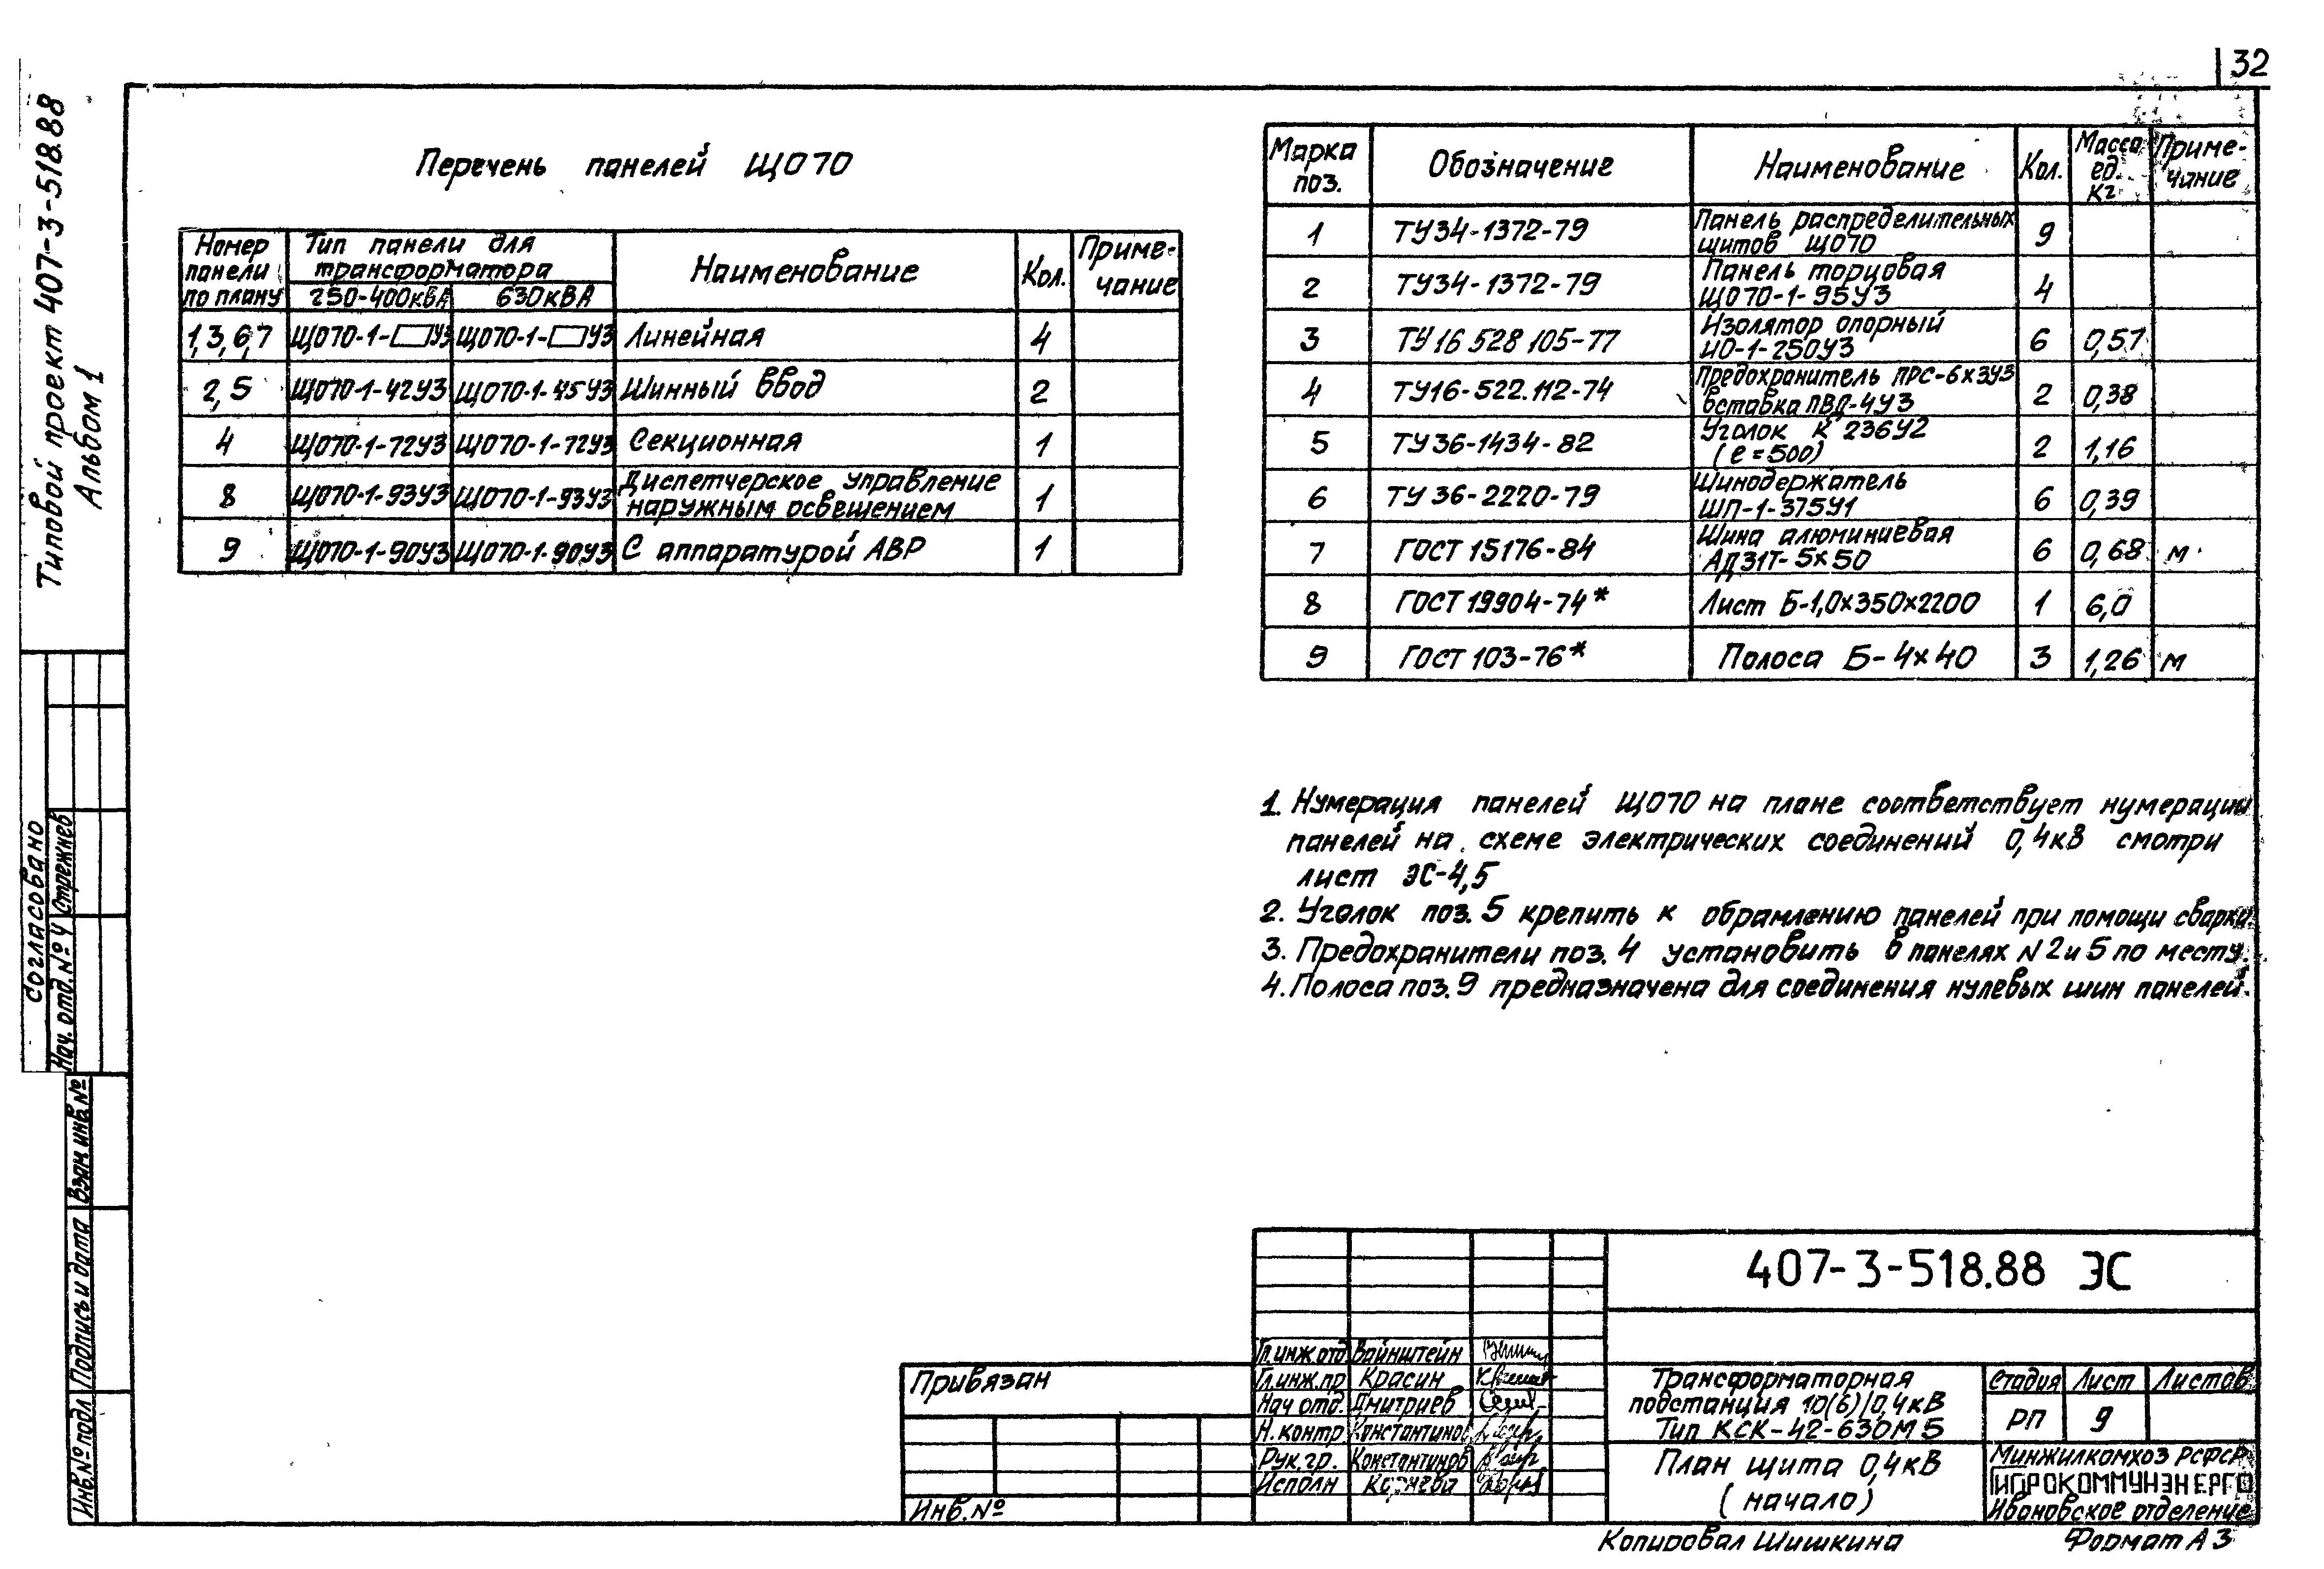 32
Типовой проект 407-3-518.88
Альбом 1
Перечень панелей ЩО70
Номер панели по плану
Тип панели для трансформатора
250-400кВА
630кВА
Наименование
Кол.
Приме-чание
1,3,6,7 ЩО70-1-□У3 ЩО70-1-□У3 Линейная 4
2,5 ЩО70-1-42У3 ЩО70-1-45У3 Шинный ввод 2
4 ЩО70-1-72У3 ЩО70-1-72У3 Секционная 1
8 ЩО70-1-93У3 ЩО70-1-93У3 Диспетчерское управление наружным освещением 1
9 ЩО70-1-90У3 ЩО70-1-90У3 С аппаратурой АВР 1
Марка поз.
Обозначение
Наименование
Кол.
Масса ед. кг
Приме-чание
1 ТУ34-1372-79 Панель распределительных щитов ЩО70 9
2 ТУ34-1372-79 Панель торцовая ЩО70-1-95У3 4
3 ТУ16 528 105-77 Изолятор опорный ИО-1-250У3 6 0,57
4 ТУ16-522.112-74 Предохранитель ПРС-6х3У3 вставка ПВД-4У3 2 0,38
5 ТУ36-1434-82 Уголок К 236У2 (е=500) 2 1,16
6 ТУ36-2220-79 Шинодержатель ШП-1-375У1 6 0,39
7 ГОСТ 15176-84 Шина алюминиевая АД31Т-5х50 6 0,68 м
8 ГОСТ 19904-74* Лист Б-1,0х350х2200 1 6,0
9 ГОСТ 103-76* Полоса Б-4х40 3 1,26 м
1. Нумерация панелей ЩО70 на плане соответствует нумерации
панелей на схеме электрических соединений 0,4кВ смотри
лист ЭС-4,5
2. Уголок поз. 5 крепить к обрамлению панелей при помощи сварки.
3. Предохранители поз. 4 установить в панелях N 2 и 5 по месту.
4. Полоса поз. 9 предназначена для соединения нулевых шин панелей.
Согласовано
Нач. отд. №4 Стрежнев
Взам инв.№
Подпись и дата
Инв.№ подл
Привязан
Инв.№
407-3-518.88 ЭС
Гл.инж.отд Вайнштейн
Гл.инж.пр Красин
Нач отд. Дмитриев
Н.контр Константинов
Рук.гр. Константинов
Исполн Корнева
Трансформаторная
подстанция 10(6)/0,4кВ
Тип КСК-42-630М5
Стадия Лист Листов
РП 9
План щита 0,4кВ
(начало)
Минжилкомхоз РСФСР
ГИПРОКОММУНЭНЕРГО
Ивановское отделение
Копировал Шишкина
Формат А3